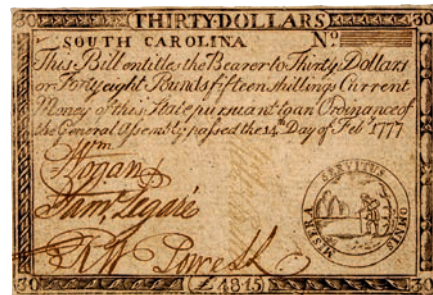 30 THIRTY·DOLLARS 30
SOUTH CAROLINA No.
This Bill entitles the Bearer to Thirty Dollars
or Forty eight Pounds fifteen shillings Current
Money of this State pursuant to an Ordinance of
the General Assembly passed the 14th Day of Feby 1777
Wm
Logan
Saml Legaré
R W Powell
SERVITUS
MISERA OMNIS
30 £48·15 30